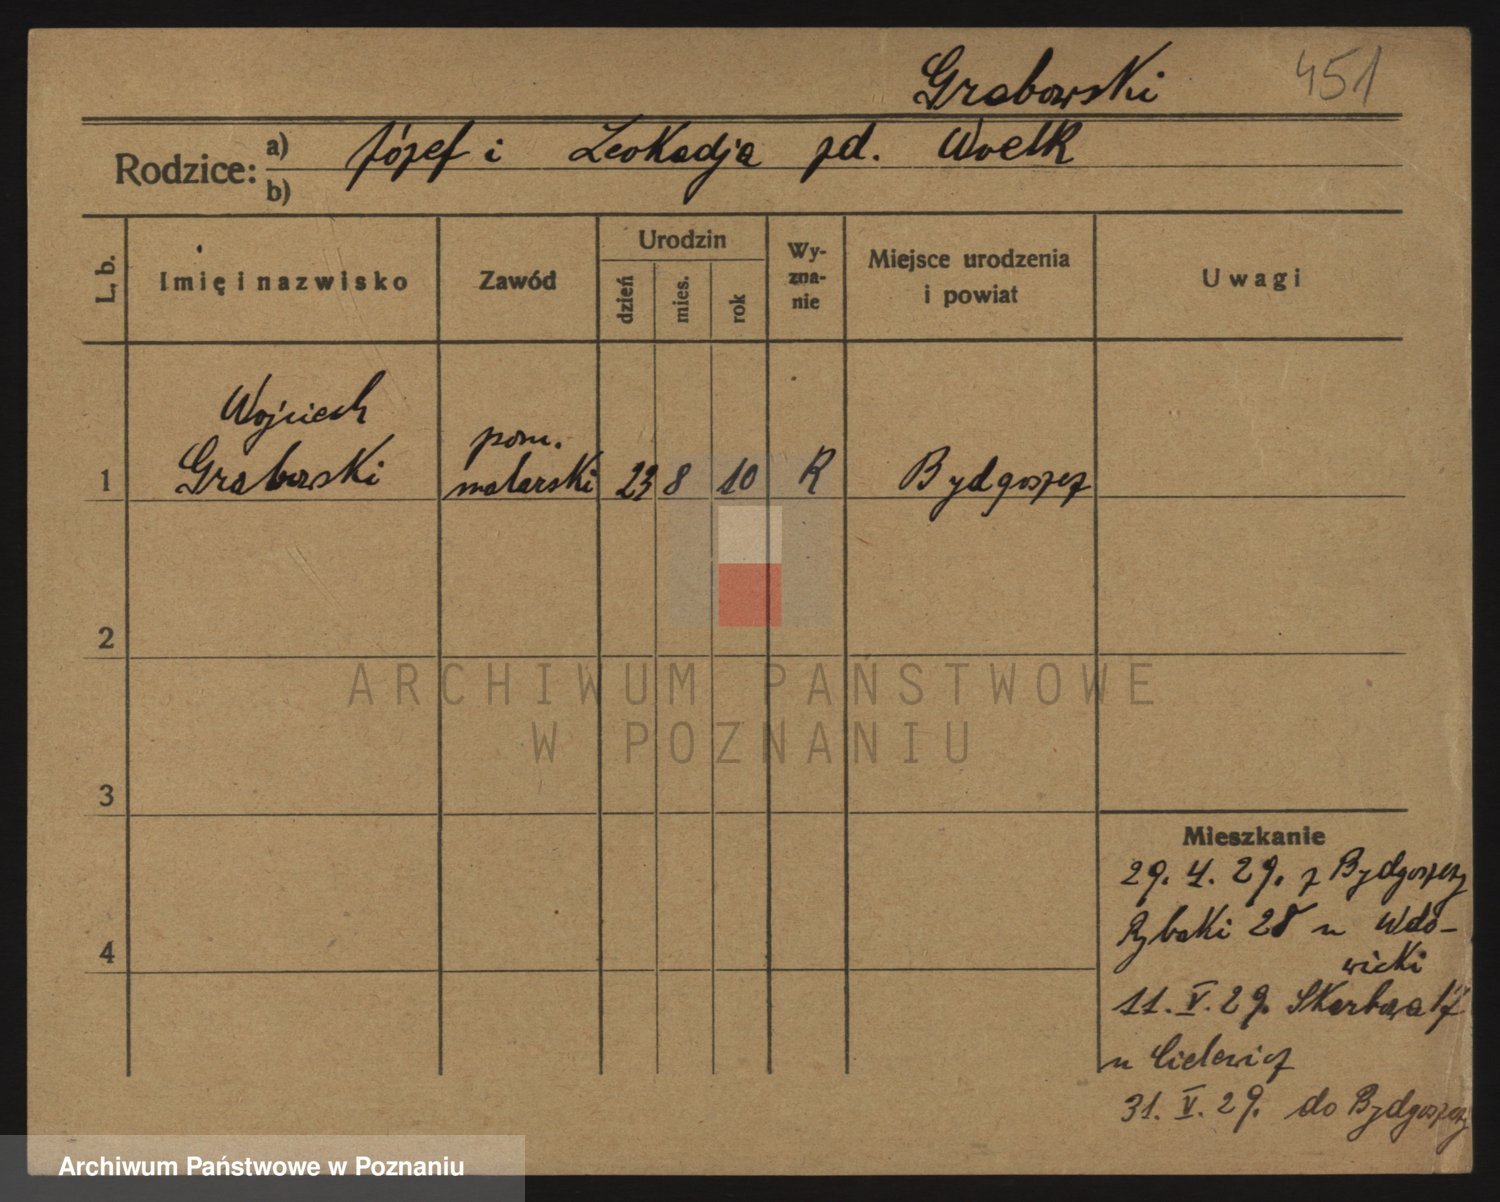 Grabowski 451
Rodzice: a) Józef i Leokadja zd. Woelk
b)
L. b. Imię i nazwisko Zawód Urodzin dzień mies. rok Wy-zna-nie Miejsce urodzenia i powiat Uwagi
Wojciech pom.
1 Grabowski malarski 23 8 10 R Bydgoszcz
2
ARCHIWUM PAŃSTWOWE
W POZNANIU
3
Mieszkanie
29. 4. 29. z Bydgoszczy
Rybaki 28 u Wdo-
wicki
4
11. V. 29. Skarbowa 17
u Cielewicz
31. V. 29. do Bydgoszczy
Archiwum Państwowe w Poznaniu